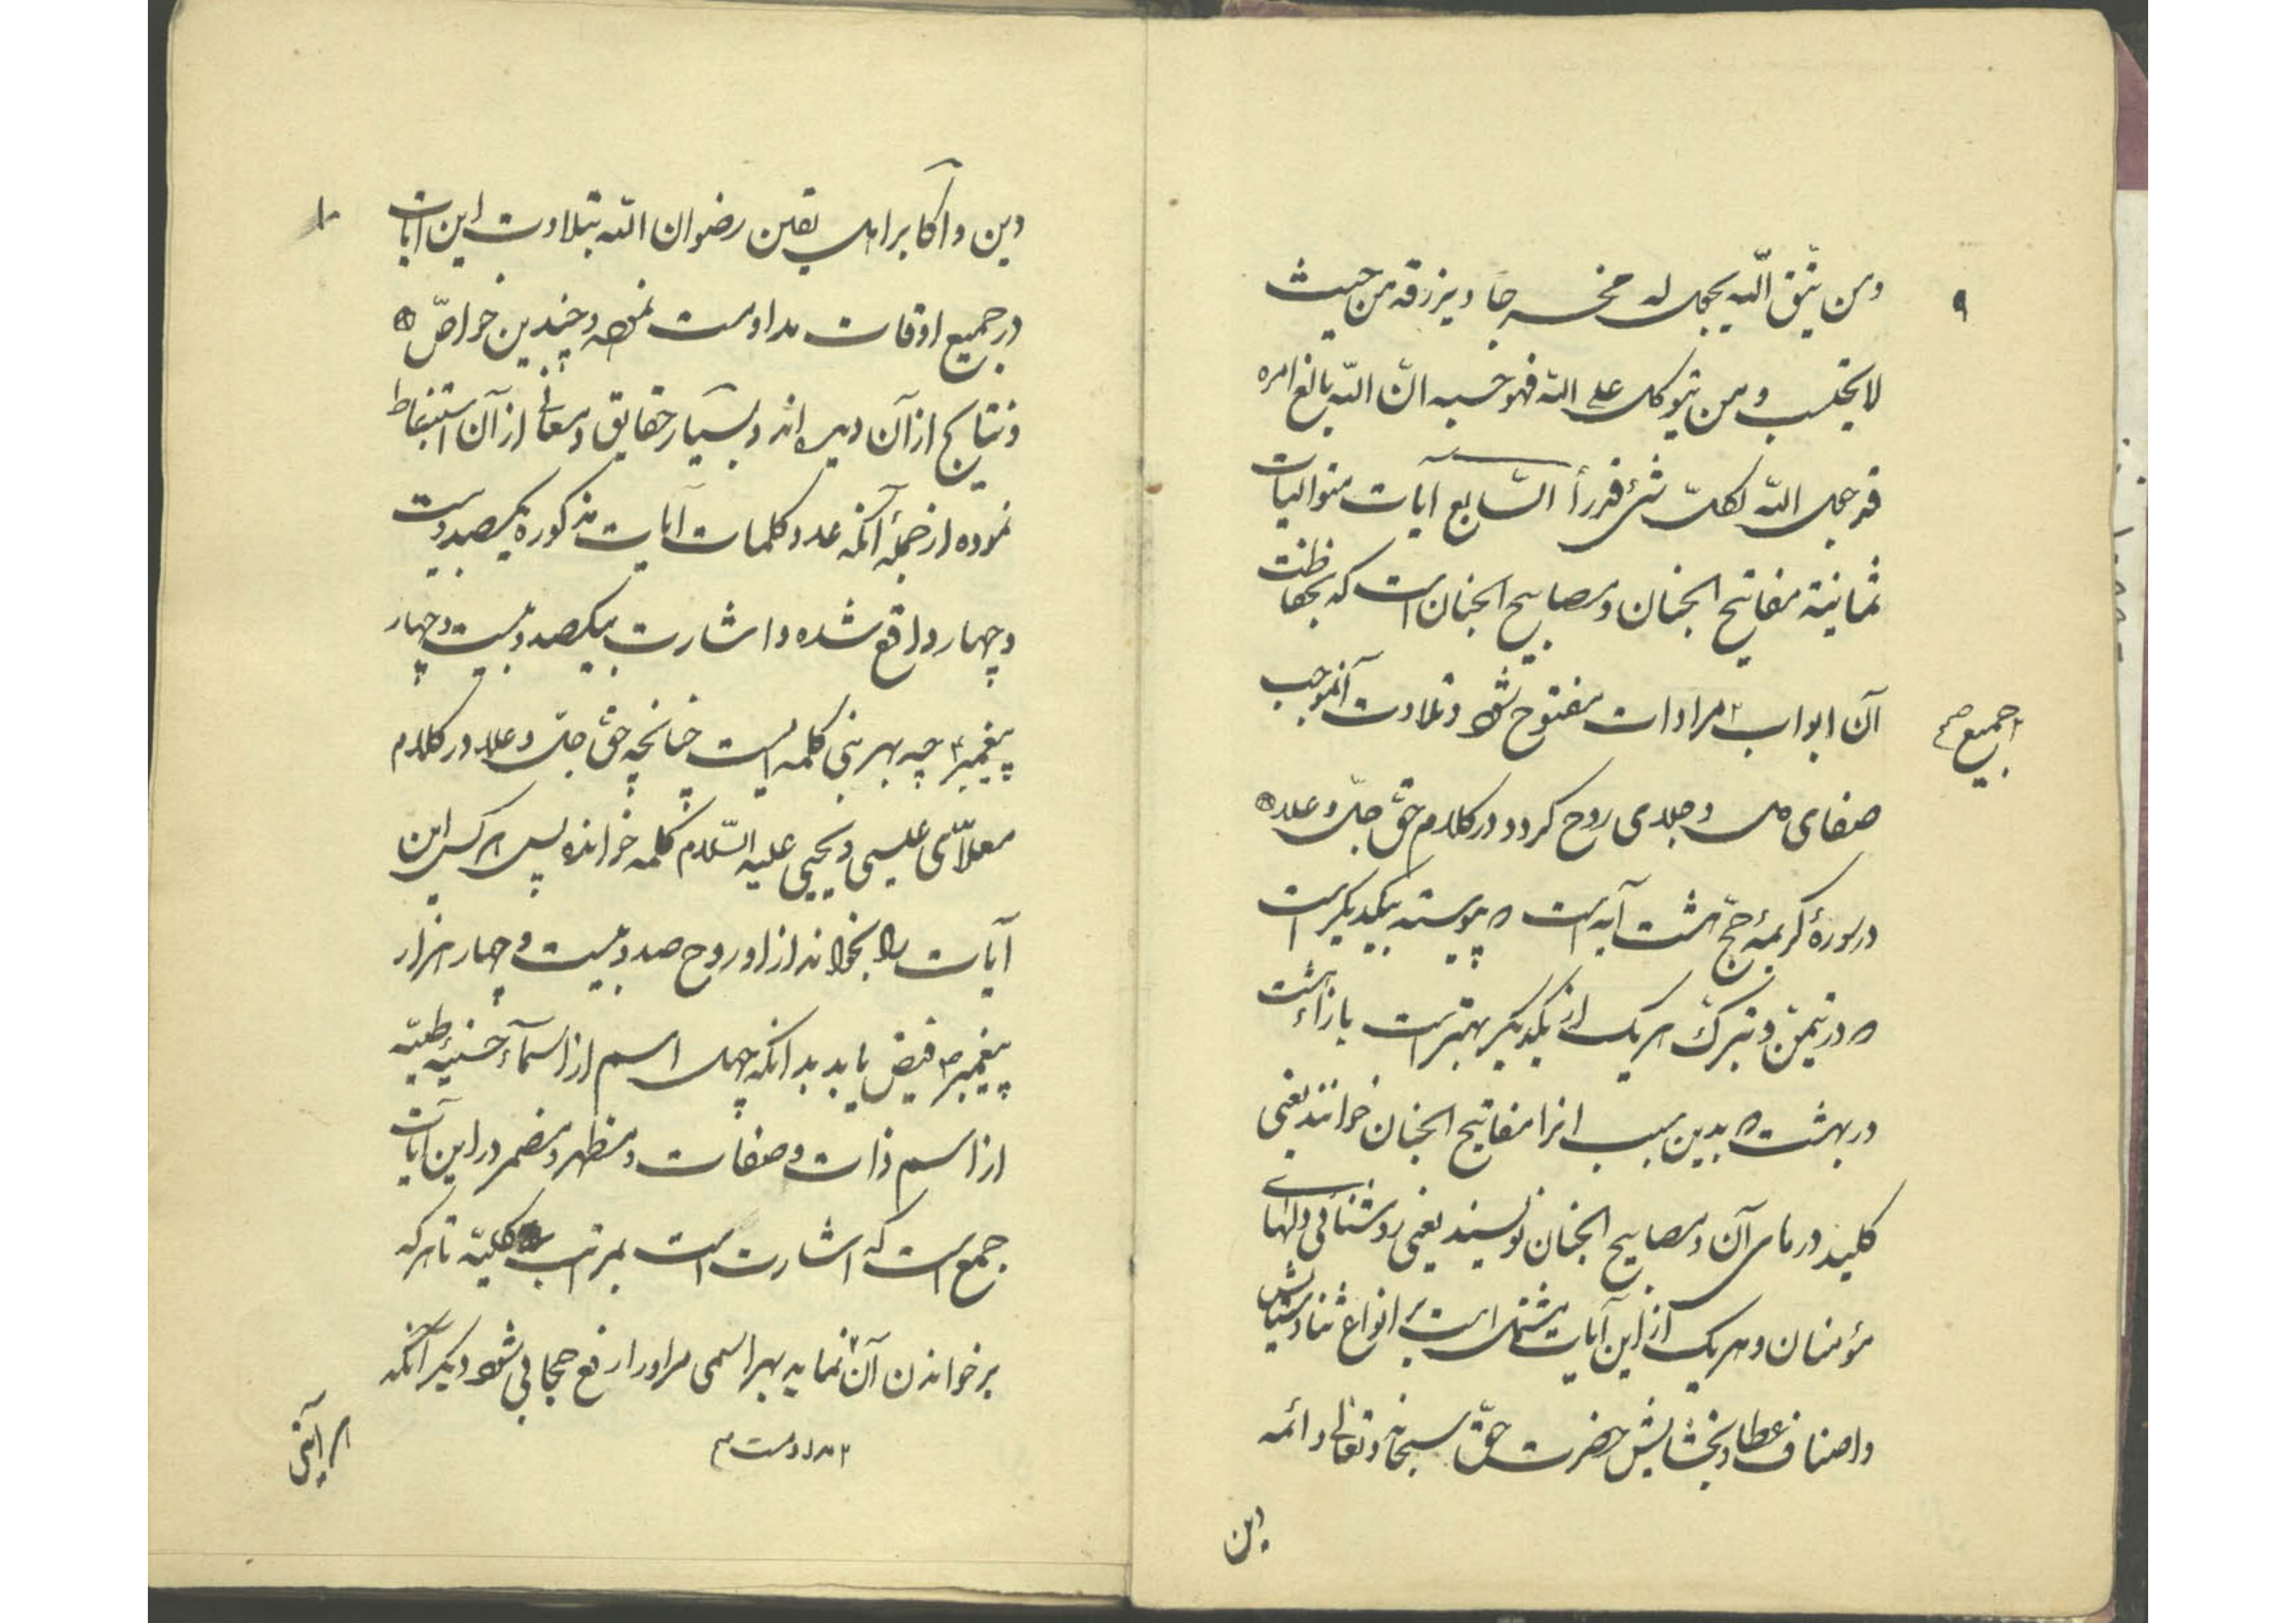 ۹
ومن یتق الله یجعل له مخرجا ویرزقه من حیث
لایحتسب ومن یتوکل علی الله فهو حسبه انّ الله بالغ امره
قد جعل الله لکلّ شیٔ قدراً السابع آیات متوالیات
ثمانیة مفاتیح الجنان ومصابیح الجنان است که بحفاظت
آن ابواب مرادات مفتوح شود وتلاوت آنموجب
جمیع صح
صفای دل وجلای روح کردد در کلام حقّ جلّ وعلا
در سورهٔ کریمهٔ حجّ هشت آیه است که پیوسته بیکدیکر است
که در تیمّن وتبرّک هریک از یکدیکر بهتر است بازاء هشت
در بهشت بدین سبب انرا مفاتیح الجنان خوانند یعنی
کلید درهای آن ومصابیح الجنان نویسند یعنی روشنائی دلهای
مؤمنان وهریک از این آیات مشتمل است بر انواع ثنا وستایش
واصناف عطا وبخشایش حضرت حقّ سبحانه وتعالی وائمه
دین
۱۰
دین واکابر اهل یقین رضوان الله بتلاوت این آیات
در جمیع اوقات مداومت نموده وچندین خواصّ
ونتایج از آن دیده اند وبسیار حقایق ومعانی از آن استنباط
نموده از جملهٔ آنکه عدد کلمات آیات مذکوره یکصد وبیست
وچهار واقع شده واشارت بیکصد وبیست وچهار
پیغمبر چه هر نبی کلمه ایست چنانچه حقّ جلّ وعلا در کلام
معلّای عیسی ویحیی علیه السّلام کلمه خوانده پس هرکس این
آیات را بخواند از او روح صد وبیست وچهار هزار
پیغمبر فیض یابد بدانکه چهل اسم از اسمآء حسنیٰ طیبّه
از اسم ذات وصفات ومظهر ومضمر در این آیات
جمع است که اشارت است بمراتب کلیّه تا هرکه
بر خواندن آن نماید بهر اسمی مر اورا رفع حجابی شود دیکر آنکه
مداومت
هر آیتی